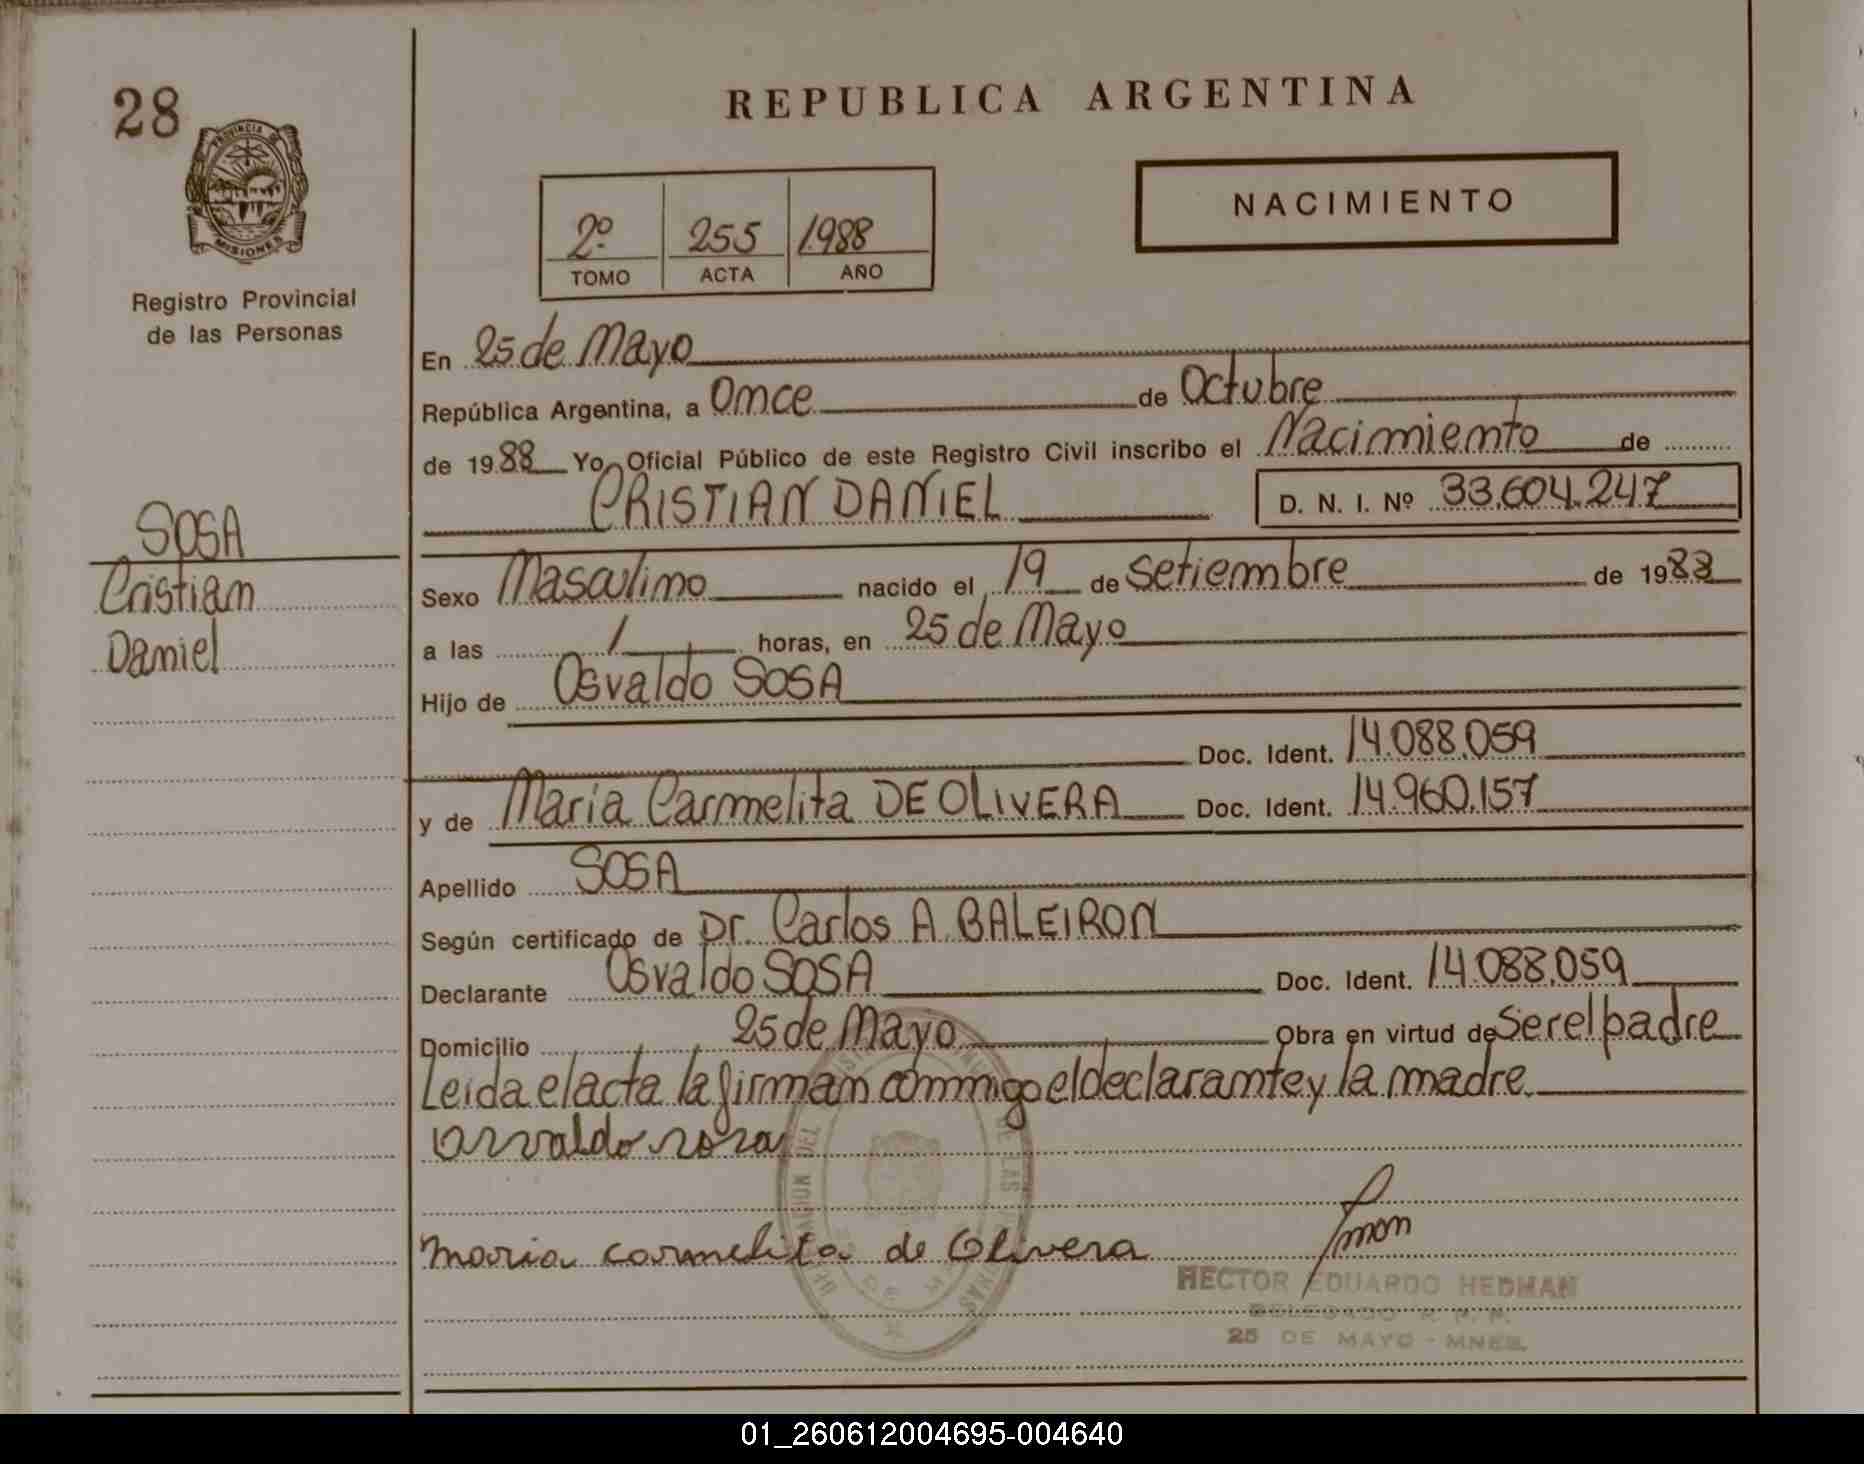 28
PROVINCIA DE
MISIONES
Registro Provincial
de las Personas
SOSA
Cristian
Daniel
REPUBLICA ARGENTINA
2º 255 1988
TOMO ACTA AÑO
NACIMIENTO
En 25 de Mayo
República Argentina, a Once de Octubre
de 1988 Yo, Oficial Público de este Registro Civil inscribo el Nacimiento de
CRISTIAN DANIEL D. N. I. Nº 33.604.247
Sexo Masculino nacido el 19 de Setiembre de 1988
a las 1 horas, en 25 de Mayo
Hijo de Osvaldo SOSA
Doc. Ident. 14.088.059
y de María Carmelita DE OLIVERA Doc. Ident. 14.960.157
Apellido SOSA
Según certificado de Dr. Carlos A. BALEIRON
Declarante Osvaldo SOSA Doc. Ident. 14.088.059
Domicilio 25 de Mayo Obra en virtud de Ser el padre
Leída el acta la firman conmigo el declarante y la madre.
Osvaldo sosa
maria carmelita de Olivera
HECTOR EDUARDO HEDMAN
DELEGADO R. P. P.
25 DE MAYO - MNES.
01_260612004695-004640